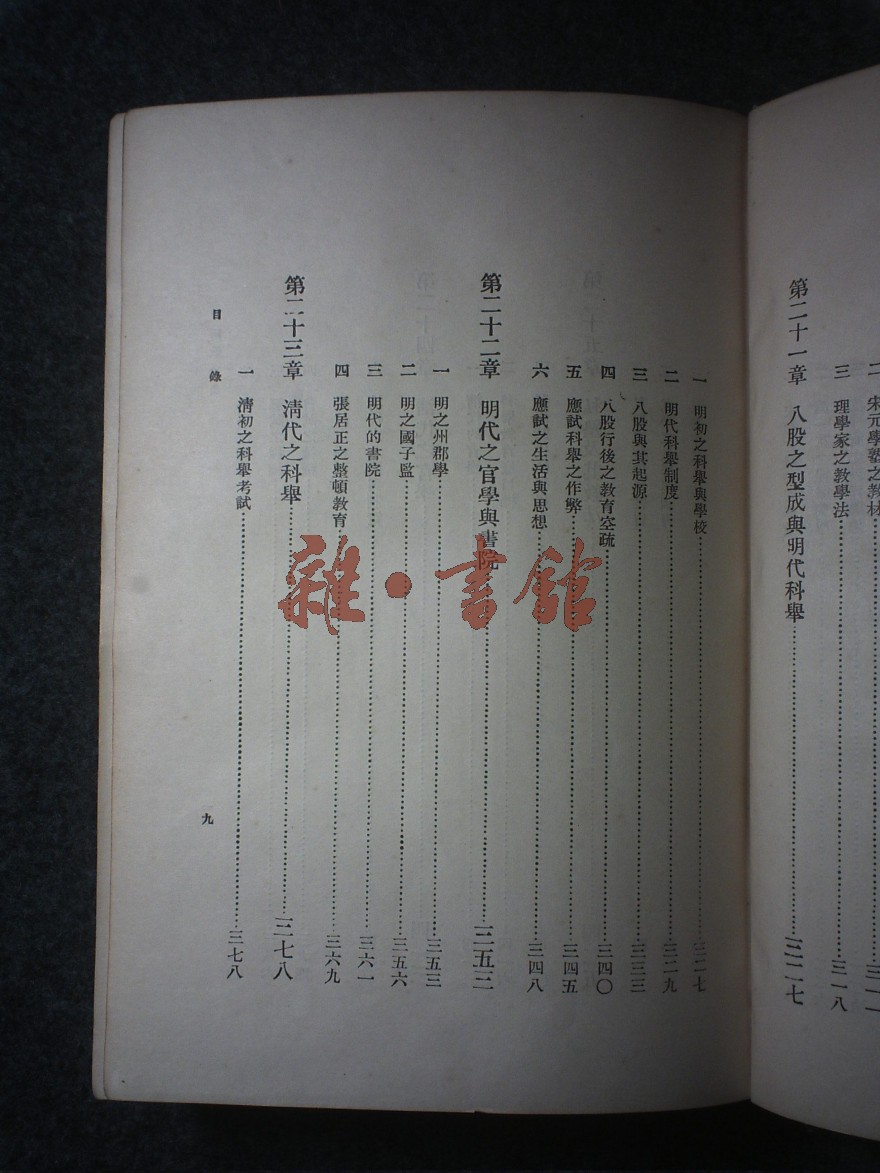 二 宋元學塾之教材……三一一
三 理學家之教學法……三一八
第二十一章 八股之型成與明代科舉……三二七
一 明初之科舉與學校……三二七
二 明代科舉制度……三二九
三 八股與其起源……三三三
四 八股行後之教育空疏……三四〇
五 應試科舉之作弊……三四五
六 應試之生活與思想……三四八
第二十二章 明代之官學與書院……三五三
一 明之州郡學……三五三
二 明之國子監……三五六
三 明代的書院……三六一
四 張居正之整頓教育……三六九
第二十三章 清代之科舉……三七八
一 清初之科舉考試……三七八
目錄
九
雜·書館